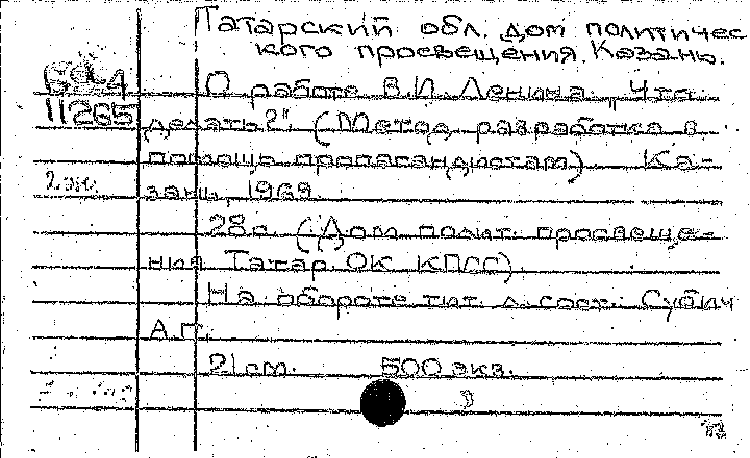 Татарский обл. дом политичес
кого просвещения, Казань.
О работе В.И. Ленина „Что
11265
делать?". (Метод. разработка в
помощь пропагандистам) Ка-
2 экз.
зань, 1969.
28с. (Дом полит. просвеще-
ния Татар. ОК КПСС).
На обороте тит. л. сост. Субич
А.Г.
21см. 500 экз.